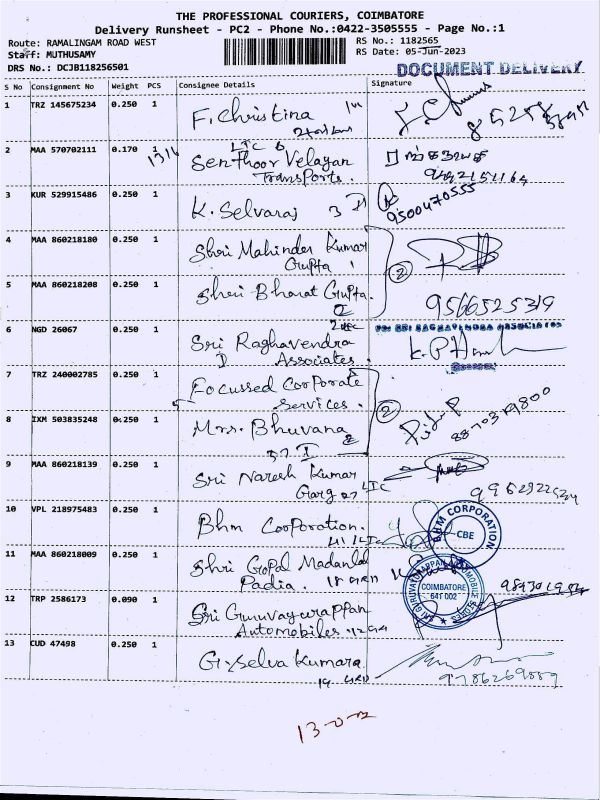 THE PROFESSIONAL COURIERS, COIMBATORE
Delivery Runsheet - PC2 - Phone No.:0422-3505555 - Page No.:1
Route: RAMALINGAM ROAD WEST
RS No.: 1182565
Staff: MUTHUSAMY
RS Date: 05-Jun-2023
DRS No.: DCJB118256501
DOCUMENT DELIVERY
S No Consignment No Weight PCS Consignee Details Signature
1 TRZ 145675234 0.250 1 F. Christina
2 MAA 570702111 0.170 1 LIC 6
1314 Senthoor Velayan
Transports.
3 KUR 529915486 0.250 1 K. Selvaraj 3
9500470555
4 MAA 860218180 0.250 1 Shri Mahinder Kumar
Gupta
2
5 MAA 860218208 0.250 1 Shri Bharat Gupta.
9566525319
6 NGD 26067 0.250 1 Sri Raghavendra
Associates
For SRI RAGHAVENDRA ASSOCIATES
7 TRZ 240002785 0.250 1 Focussed Corporate
Services.
2
8 IXM 503835248 0.250 1 Mrs. Bhuvana
9 MAA 860218139 0.250 1 Sri Naresh Kumar
Garg 27 LIC
10 VPL 218975483 0.250 1 Bhm Corporation.
BHM CORPORATION
CBE
11 MAA 860218009 0.250 1 Shri Gopal Madanlal
Padia.
COIMBATORE
641 002
12 TRP 2586173 0.090 1 Sri Guruvayurappan
Automobiles
13 CUD 47498 0.250 1 G. Selva Kumara
9786269889